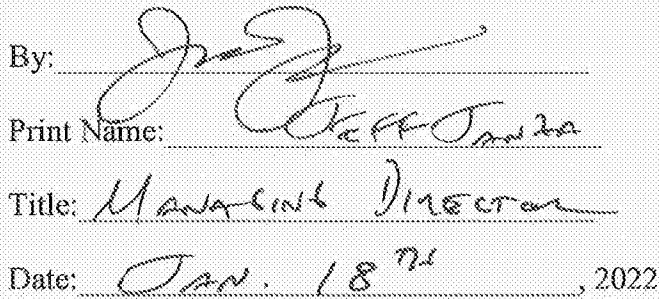 By:
Print Name: JEFF JANZA
Title: MANAGING DIRECTOR
Date: JAN. 18TH, 2022